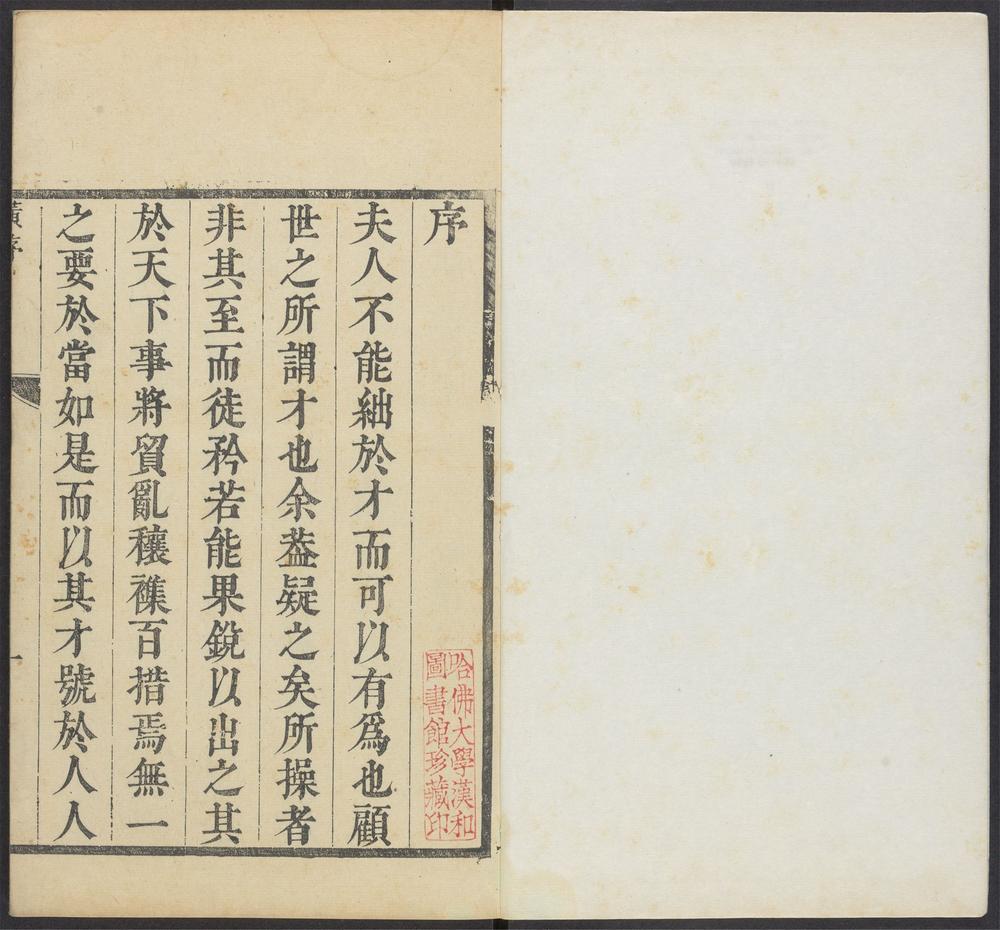 序
夫人不能絀於才而可以有爲也顧
世之所謂才也余葢疑之矣所操者
非其至而徒矜若能果銳以出之其
於天下事將貿亂穰襍百措焉無一
之要於當如是而以其才號於人人
哈佛大學漢和
圖書館珍藏印